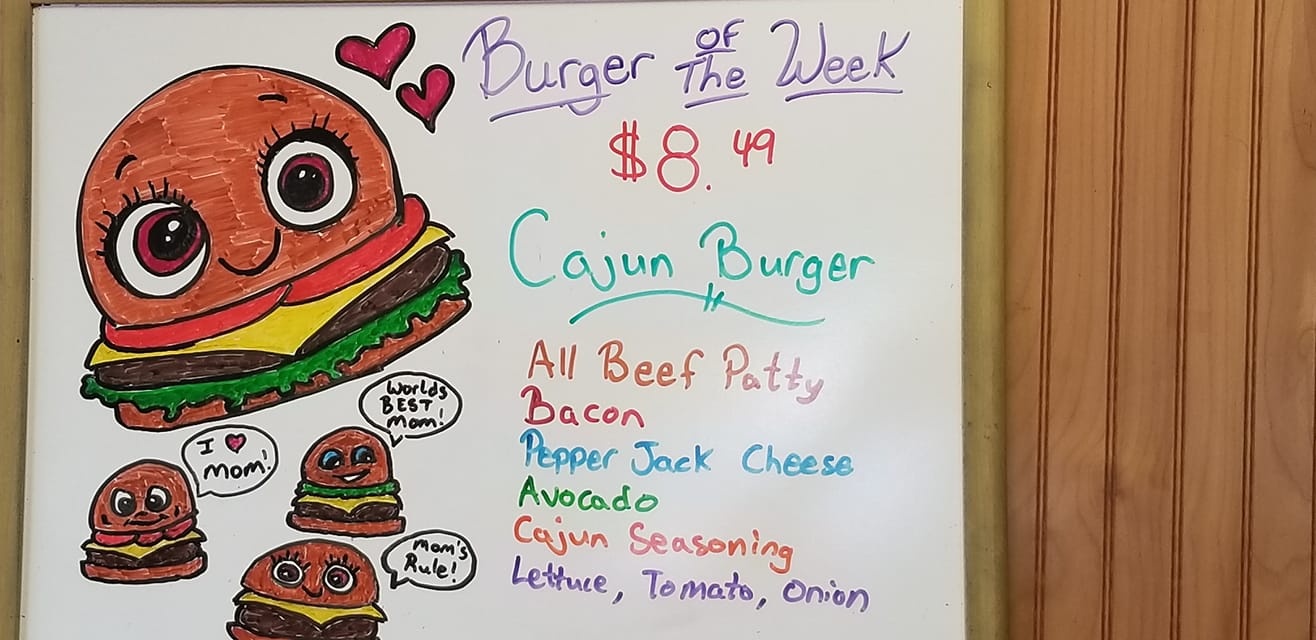 Burger OF The Week
$8.49
Cajun Burger
All Beef Patty
Bacon
Pepper Jack Cheese
Avocado
Cajun Seasoning
Lettuce, Tomato, Onion
Worlds
BEST
Mom!
I ♥
Mom!
Mom's
Rule!